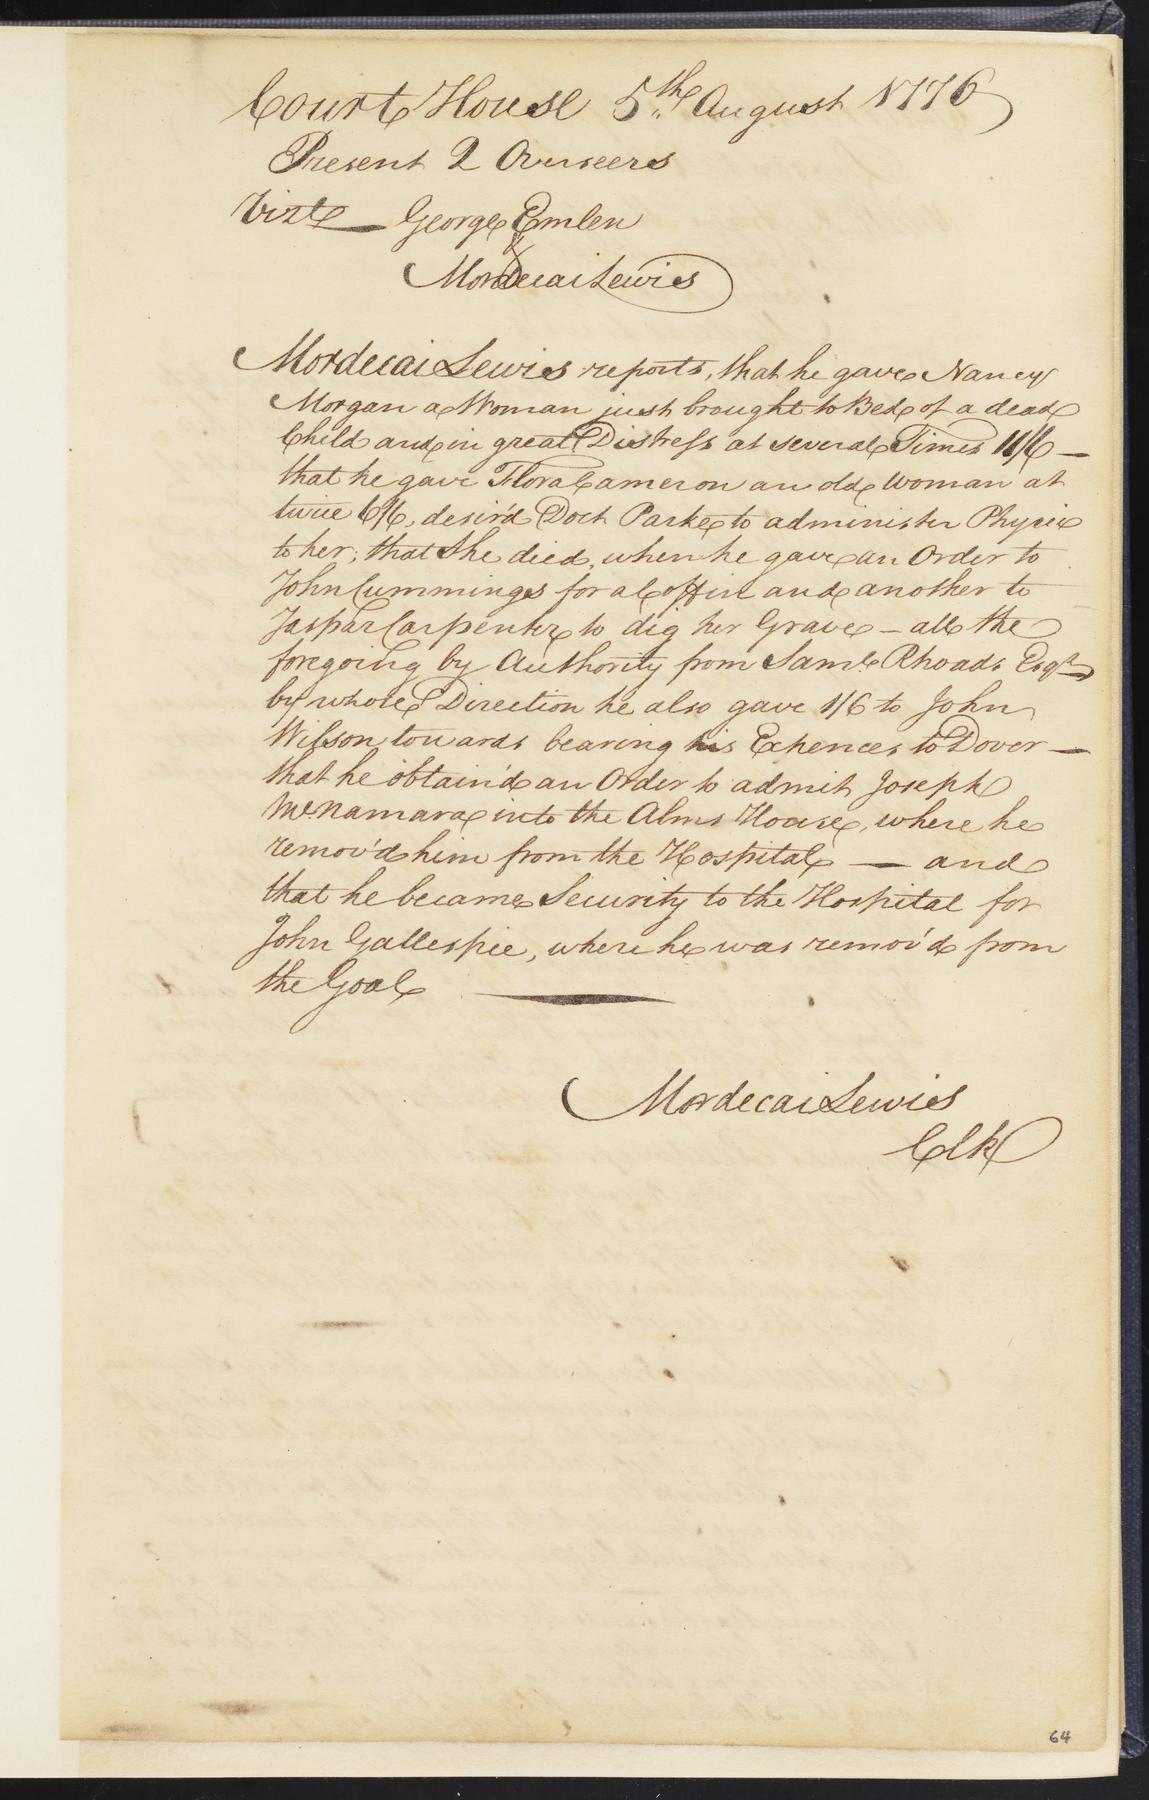 Court House 5.th August 1776
Present 2 Overseers
Vizt — George Emlen
&
Mordecai Lewis
Mordecai Lewis reports, that he gave Nancy
Morgan a Woman just brought to Bed of a dead
Child and in great Distress at several Times 11/6 —
that he gave Flora Cameron an old Woman at
twice 6/6, desir'd Doct Parke to administer Physic
to her; that She died, when he gave an Order to
John Cummings for a Coffin and another to
Jaspar Carpenter to dig her Grave — all the
foregoing by Authority from Saml Rhoads Esqr
by whose Direction he also gave 1/6 to John
Wilson towards bearing his Expences to Dover —
that he obtain'd an Order to admit Joseph
McNamara into the Alms House, where he
remov'd him from the Hospital — and
that he became Security to the Hospital for
John Gallespie, where he was remov'd from
the Goal
Mordecai Lewis
Clk
64